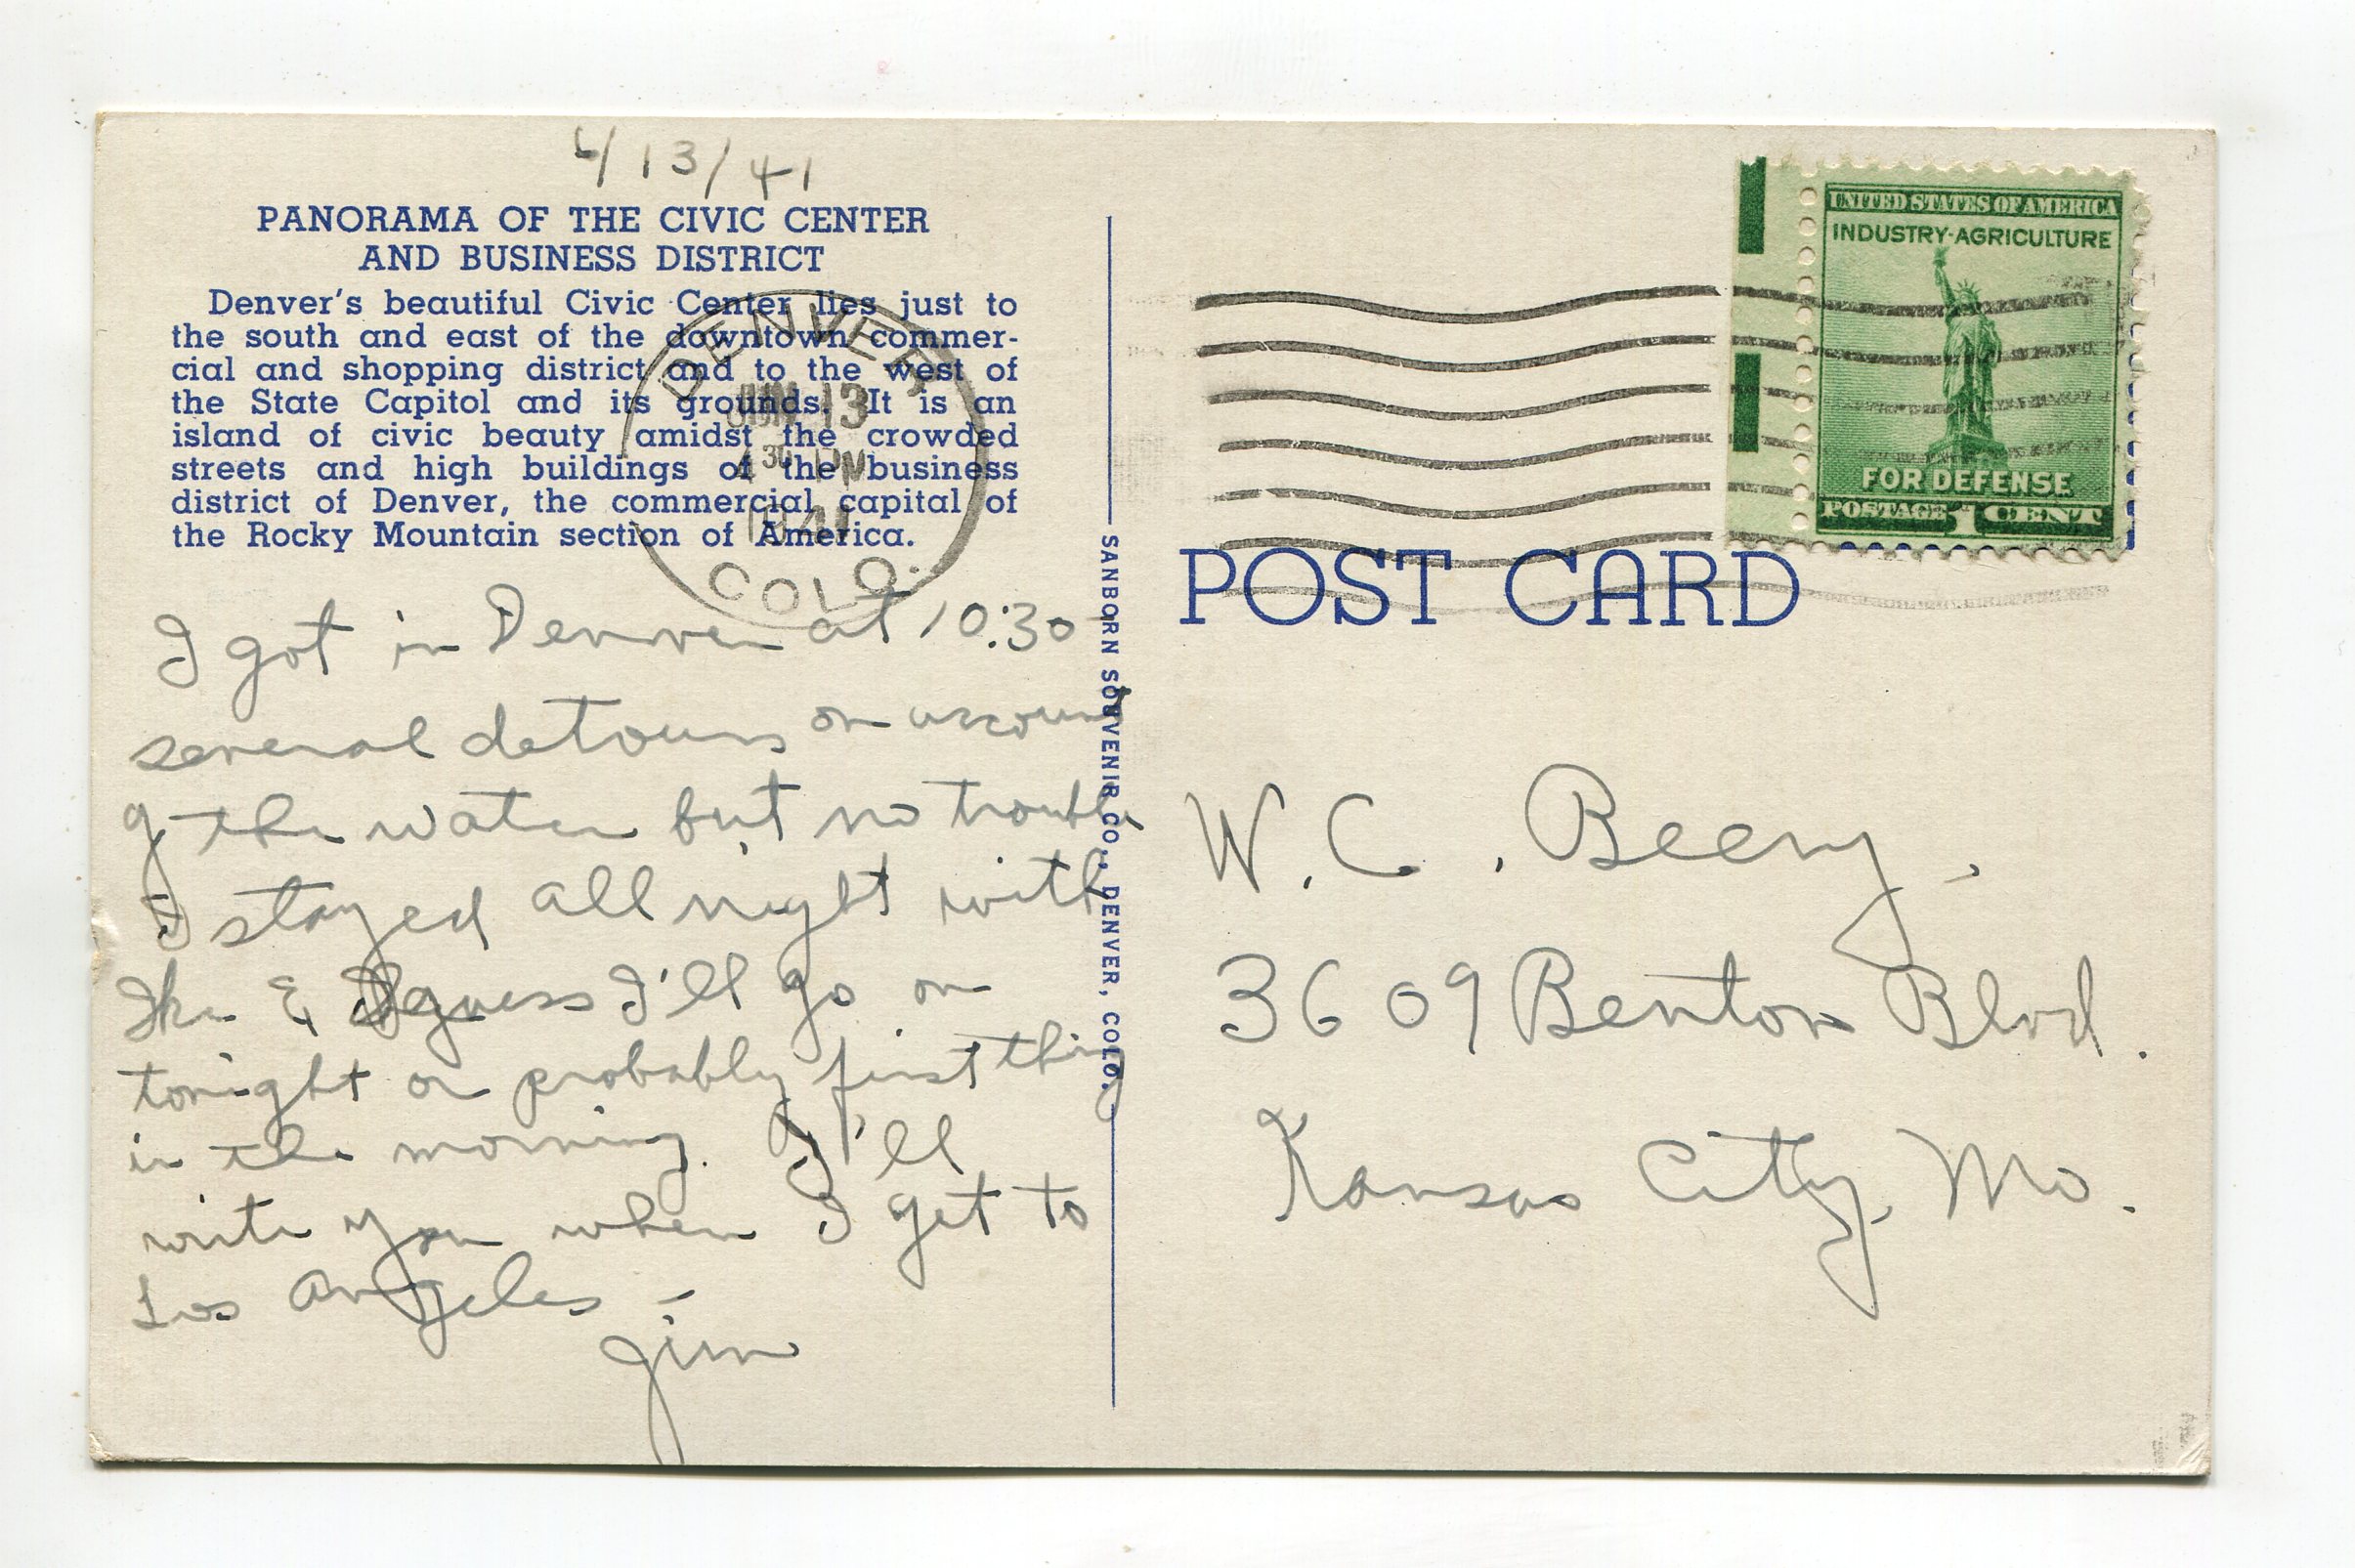 6/13/41
PANORAMA OF THE CIVIC CENTER
AND BUSINESS DISTRICT
Denver's beautiful Civic Center lies just to
the south and east of the downtown commer-
cial and shopping district and to the west of
the State Capitol and its grounds. It is an
island of civic beauty amidst the crowded
streets and high buildings of the business
district of Denver, the commercial capital of
the Rocky Mountain section of America.
DENVER
JUN 13
4 30 PM
1941
COLO.
I got in Denver at 10:30
several detours on account
of the water but no trouble
I stayed all night with
Ike & Agness I'll go on
tonight or probably first thing
in the morning. I'll
write you when I get to
Los Angeles -
Jim
SANBORN SOUVENIR CO., DENVER, COLO.
UNITED STATES OF AMERICA
INDUSTRY-AGRICULTURE
FOR DEFENSE
POSTAGE 1 CENT
POST CARD
W. C. Beery,
3609 Benton Blvd.
Kansas City, Mo.